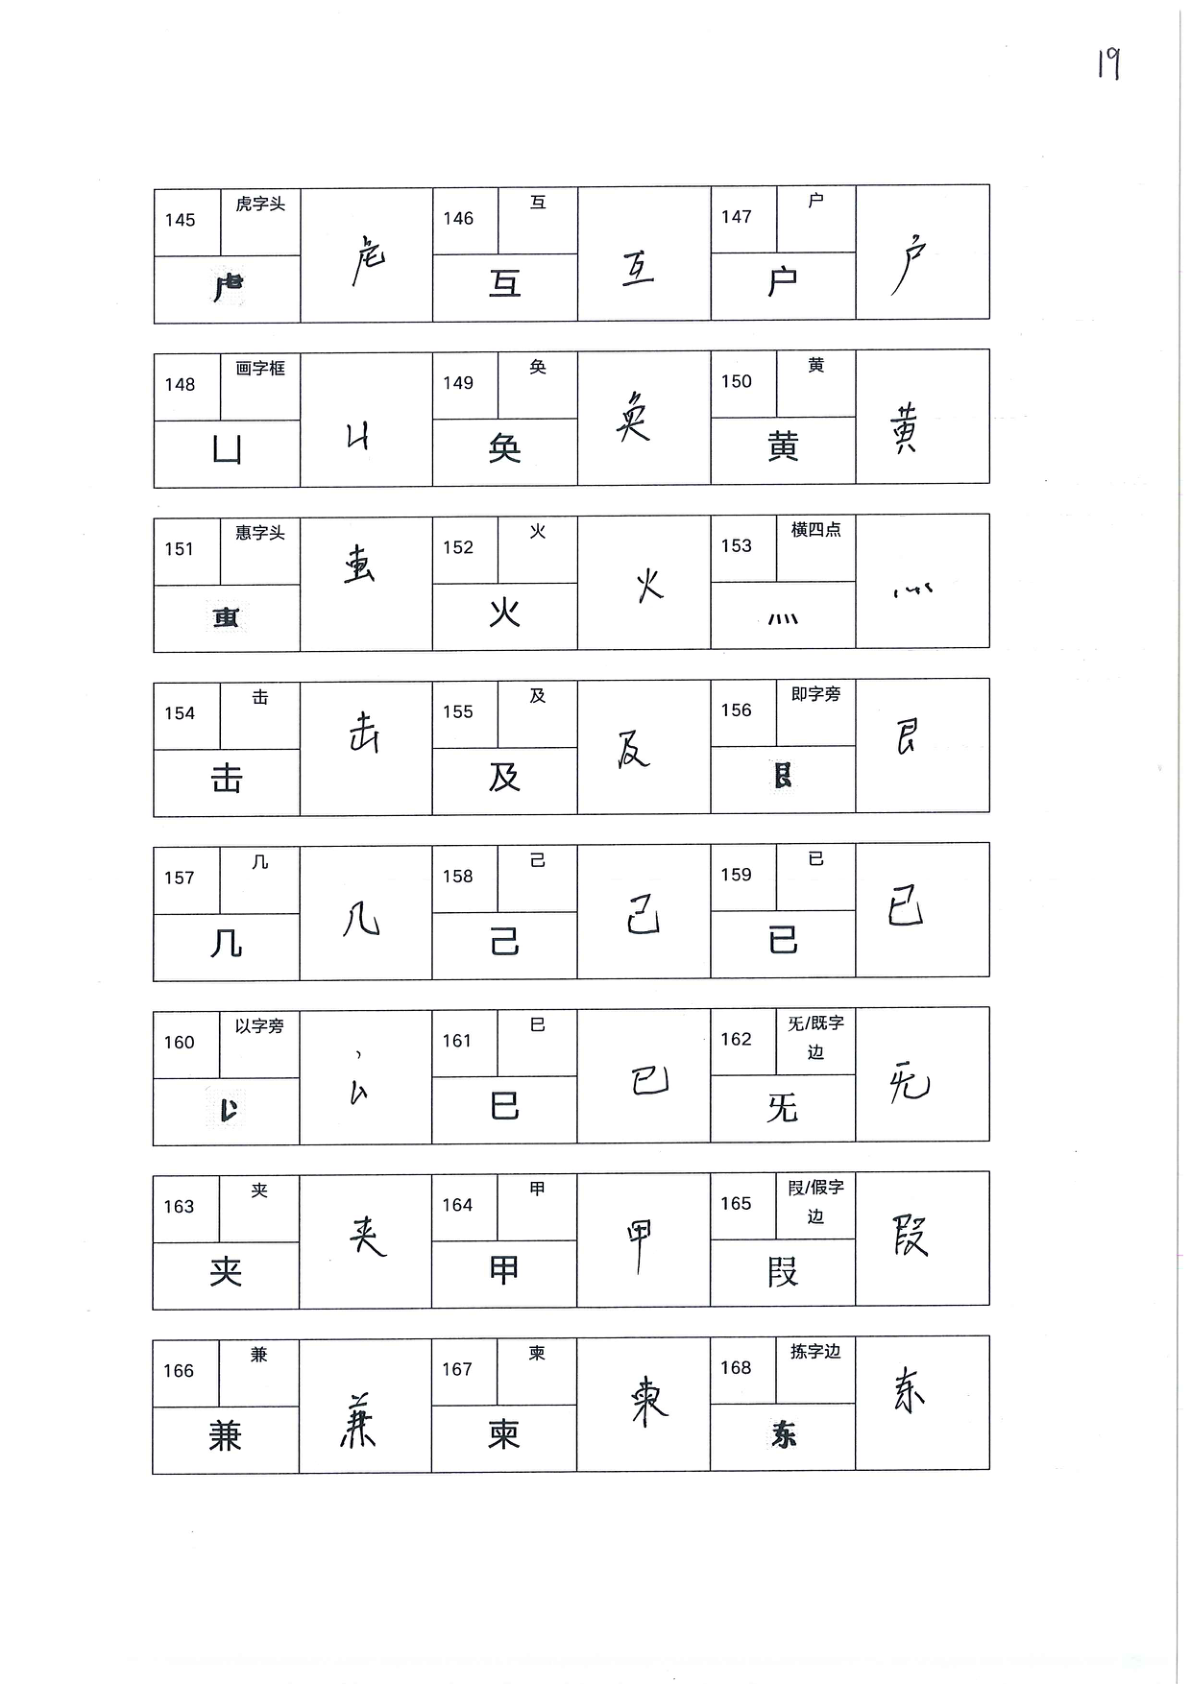 19
145 虎字头 虍 虍 146 互 互 互 147 户 户 户
148 画字框 凵 凵 149 奂 奂 奂 150 黄 黄 黄
151 惠字头 152 火 火 火 153 横四点 灬 灬
154 击 击 击 155 及 及 及 156 即字旁
157 几 几 几 158 己 己 己 159 已 已 已
160 以字旁 161 巳 巳 巳 162 旡/既字边 旡 旡
163 夹 夹 夹 164 甲 甲 甲 165 叚/假字边 叚 叚
166 兼 兼 兼 167 柬 柬 柬 168 拣字边